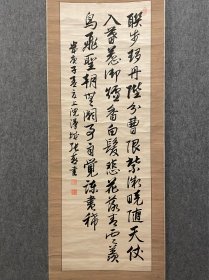 聯步趨丹陛分曹限紫微曉隨天仗
入暮惹御香白髮悲花落青雲羨
鳥飛聖朝無闕事自覺諫書稀
庚子上浣張書